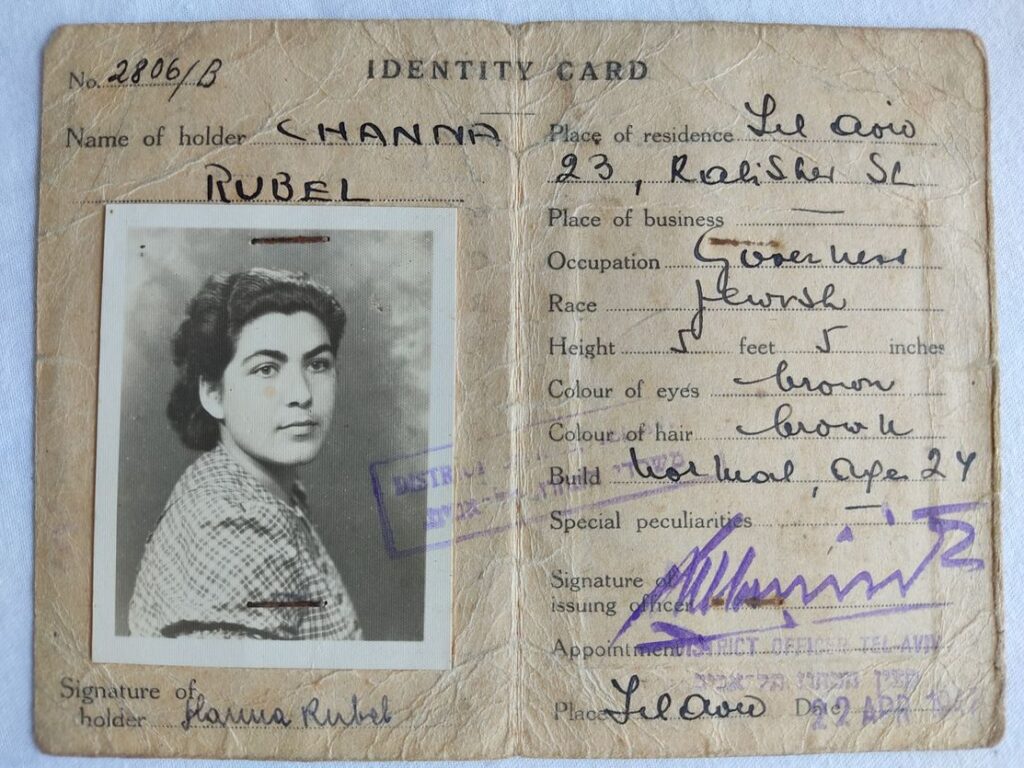 IDENTITY CARD
No. 2806/B
Name of holder CHANNA
RUBEL
Signature of
holder Hanna Rubel
Place of residence Tel Aviv
23, Kalisher St
Place of business —
Occupation Governess
Race Jewish
Height 5 feet 5 inches
Colour of eyes brown
Colour of hair brown
Build normal, age 24
Special peculiarities —
Signature of
issuing officer
Appointment DISTRICT OFFICER TEL-AVIV
קצין המחוז תל־אביב
Place Tel Aviv Date 22 APR
DISTR